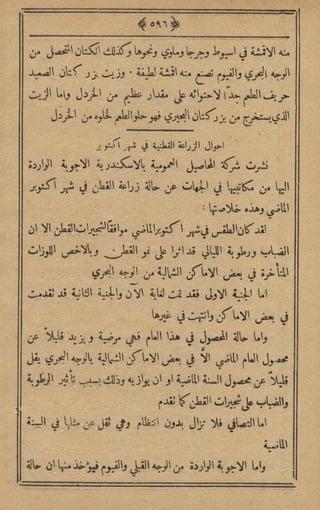 ﴿ ٥٩٦ ﴾
منه الاقمشة في اسيوط وجرجا وملوي ونحوها وكذلك ألكتان المتحصل من
الوجه البحري والفيوم تصنع منه اقمشة لطيفة · وزيت بزر كتان الصعيد
حريف الطعم جدًّا لاحتوائه على مقدار عظيم من الخردل واما الزيت
الذي يستخرج من بزر كتان البحيري فهو حلو الطعم لخلوه من الخردل
احوال الزراعة القطنية في شهر اكتوبر
نشرت شركة المحاصيل العمومية بالاسكندرية الاجوبة الواردة
اليها من مكاتبيها في الجهات عن حالة زراعة القطن في شهر أكتوبر
الماضي وهذه خلاصتها :
لقد كان الطقس في شهر اكتوبر الماضي موافقًا لشجيرات القطن الا ان
الضباب ورطوبة الليالي قد اثرا على نمو القطن وبالاخص اللوزات
المتأخرة في بعض الاماكن الشمالية من الوجه البحري
اما الجنية الاولى فقد تمت لغاية الآن والجنية الثانية قد تقدمت
في بعض الاماكن وانتهت في غيرها
واما حالة المحصول في هذا العام فهي مرضية ويزيد قليلاً عن
محصول العام الماضي الاّ في بعض الاماكن الشمالية بالوجه البحري يقل
قليلاً عن محصول السنة الماضية او ان يوازيه وذلك بسبب تأثير الرطوبة
والضباب على شجيرات القطن كما تقدم
اما التصافي فلا تزال بدون انتظام وهي تقل عن مثلها في السنة
الماضية
واما الاجوبة الواردة من الوجه القبلي والفيوم فيؤخذ منها ان حالة